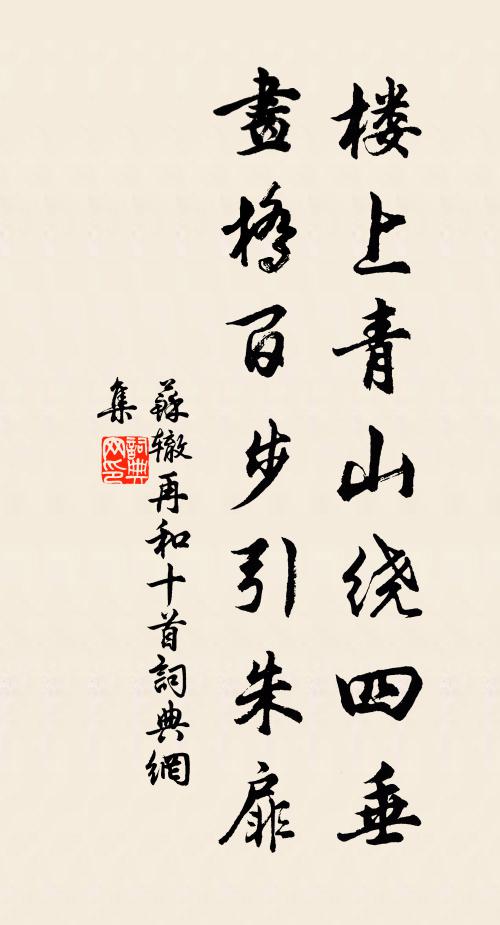 楼上青山绕四垂
畫橋百步引朱扉
蘇辙再和十首詞典網
集
詞典
网印